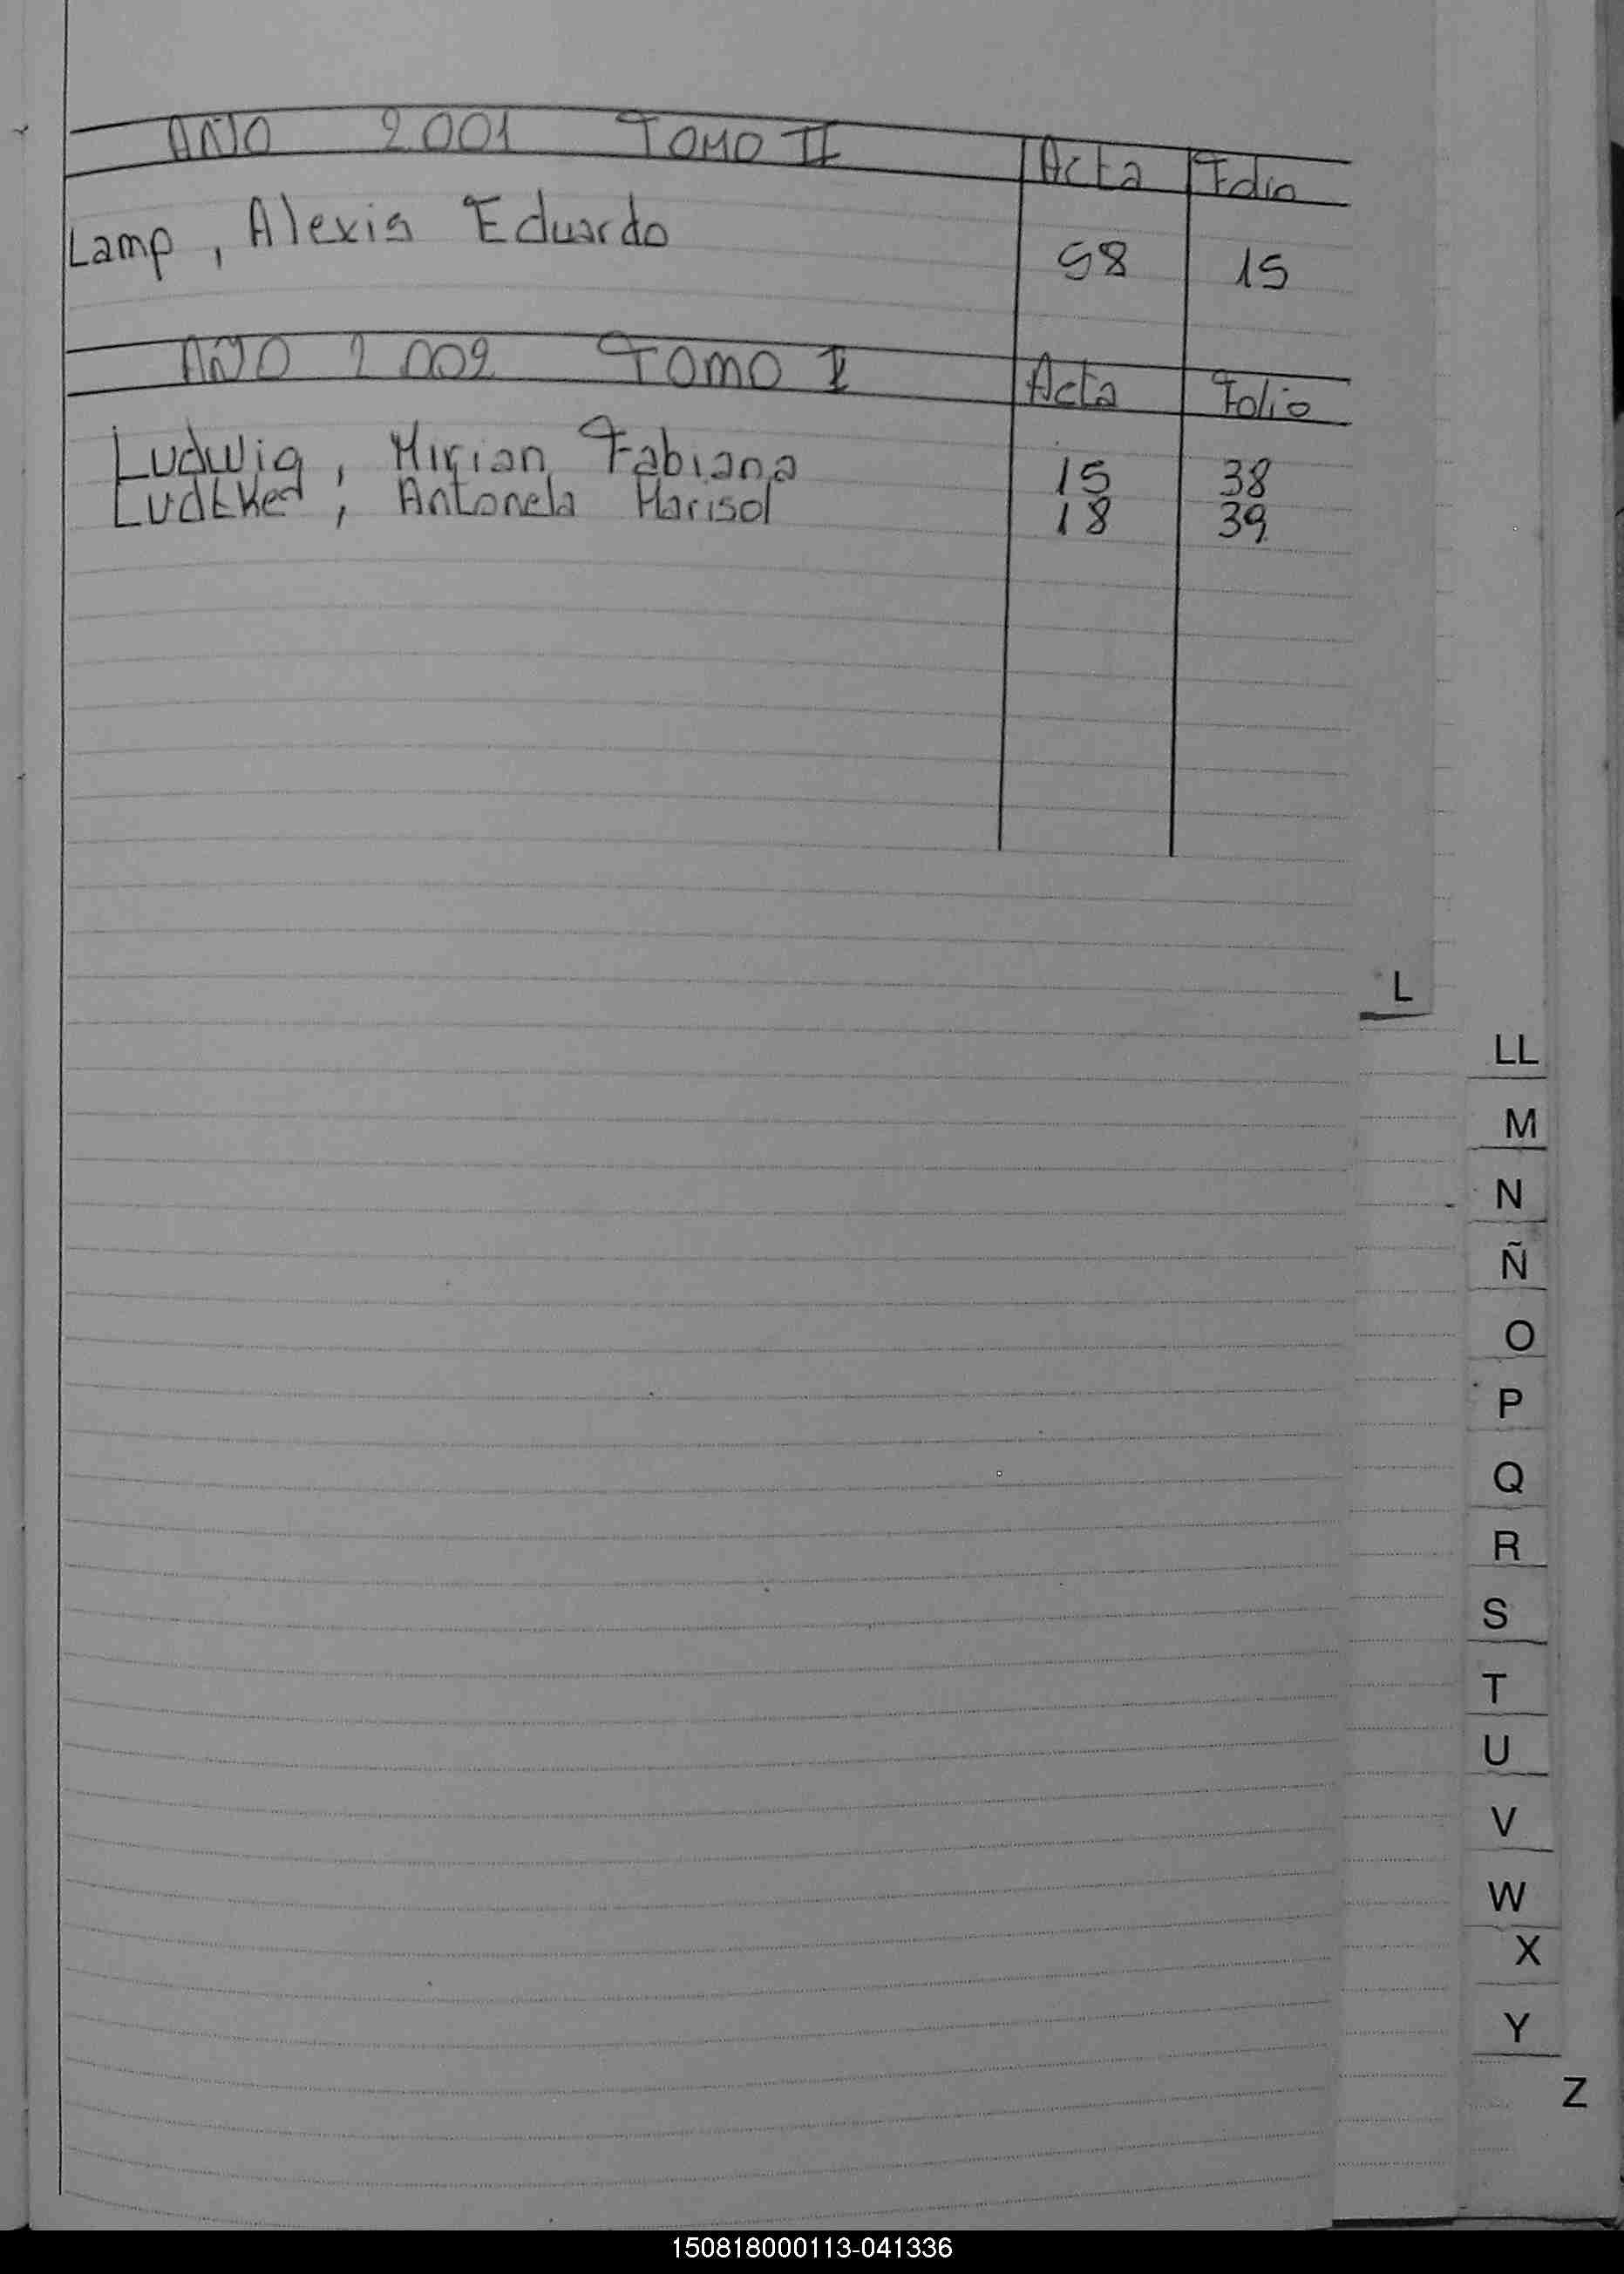 AÑO 2001 TOMO II Acta Folio
Lamp, Alexis Eduardo 58 15
AÑO 2002 TOMO I Acta Folio
Ludwig, Mirian Fabiana 15 38
Ludtked, Antonela Marisol 18 39
L
LL
M
N
Ñ
O
P
Q
R
S
T
U
V
W
X
Y
Z
150818000113-041336